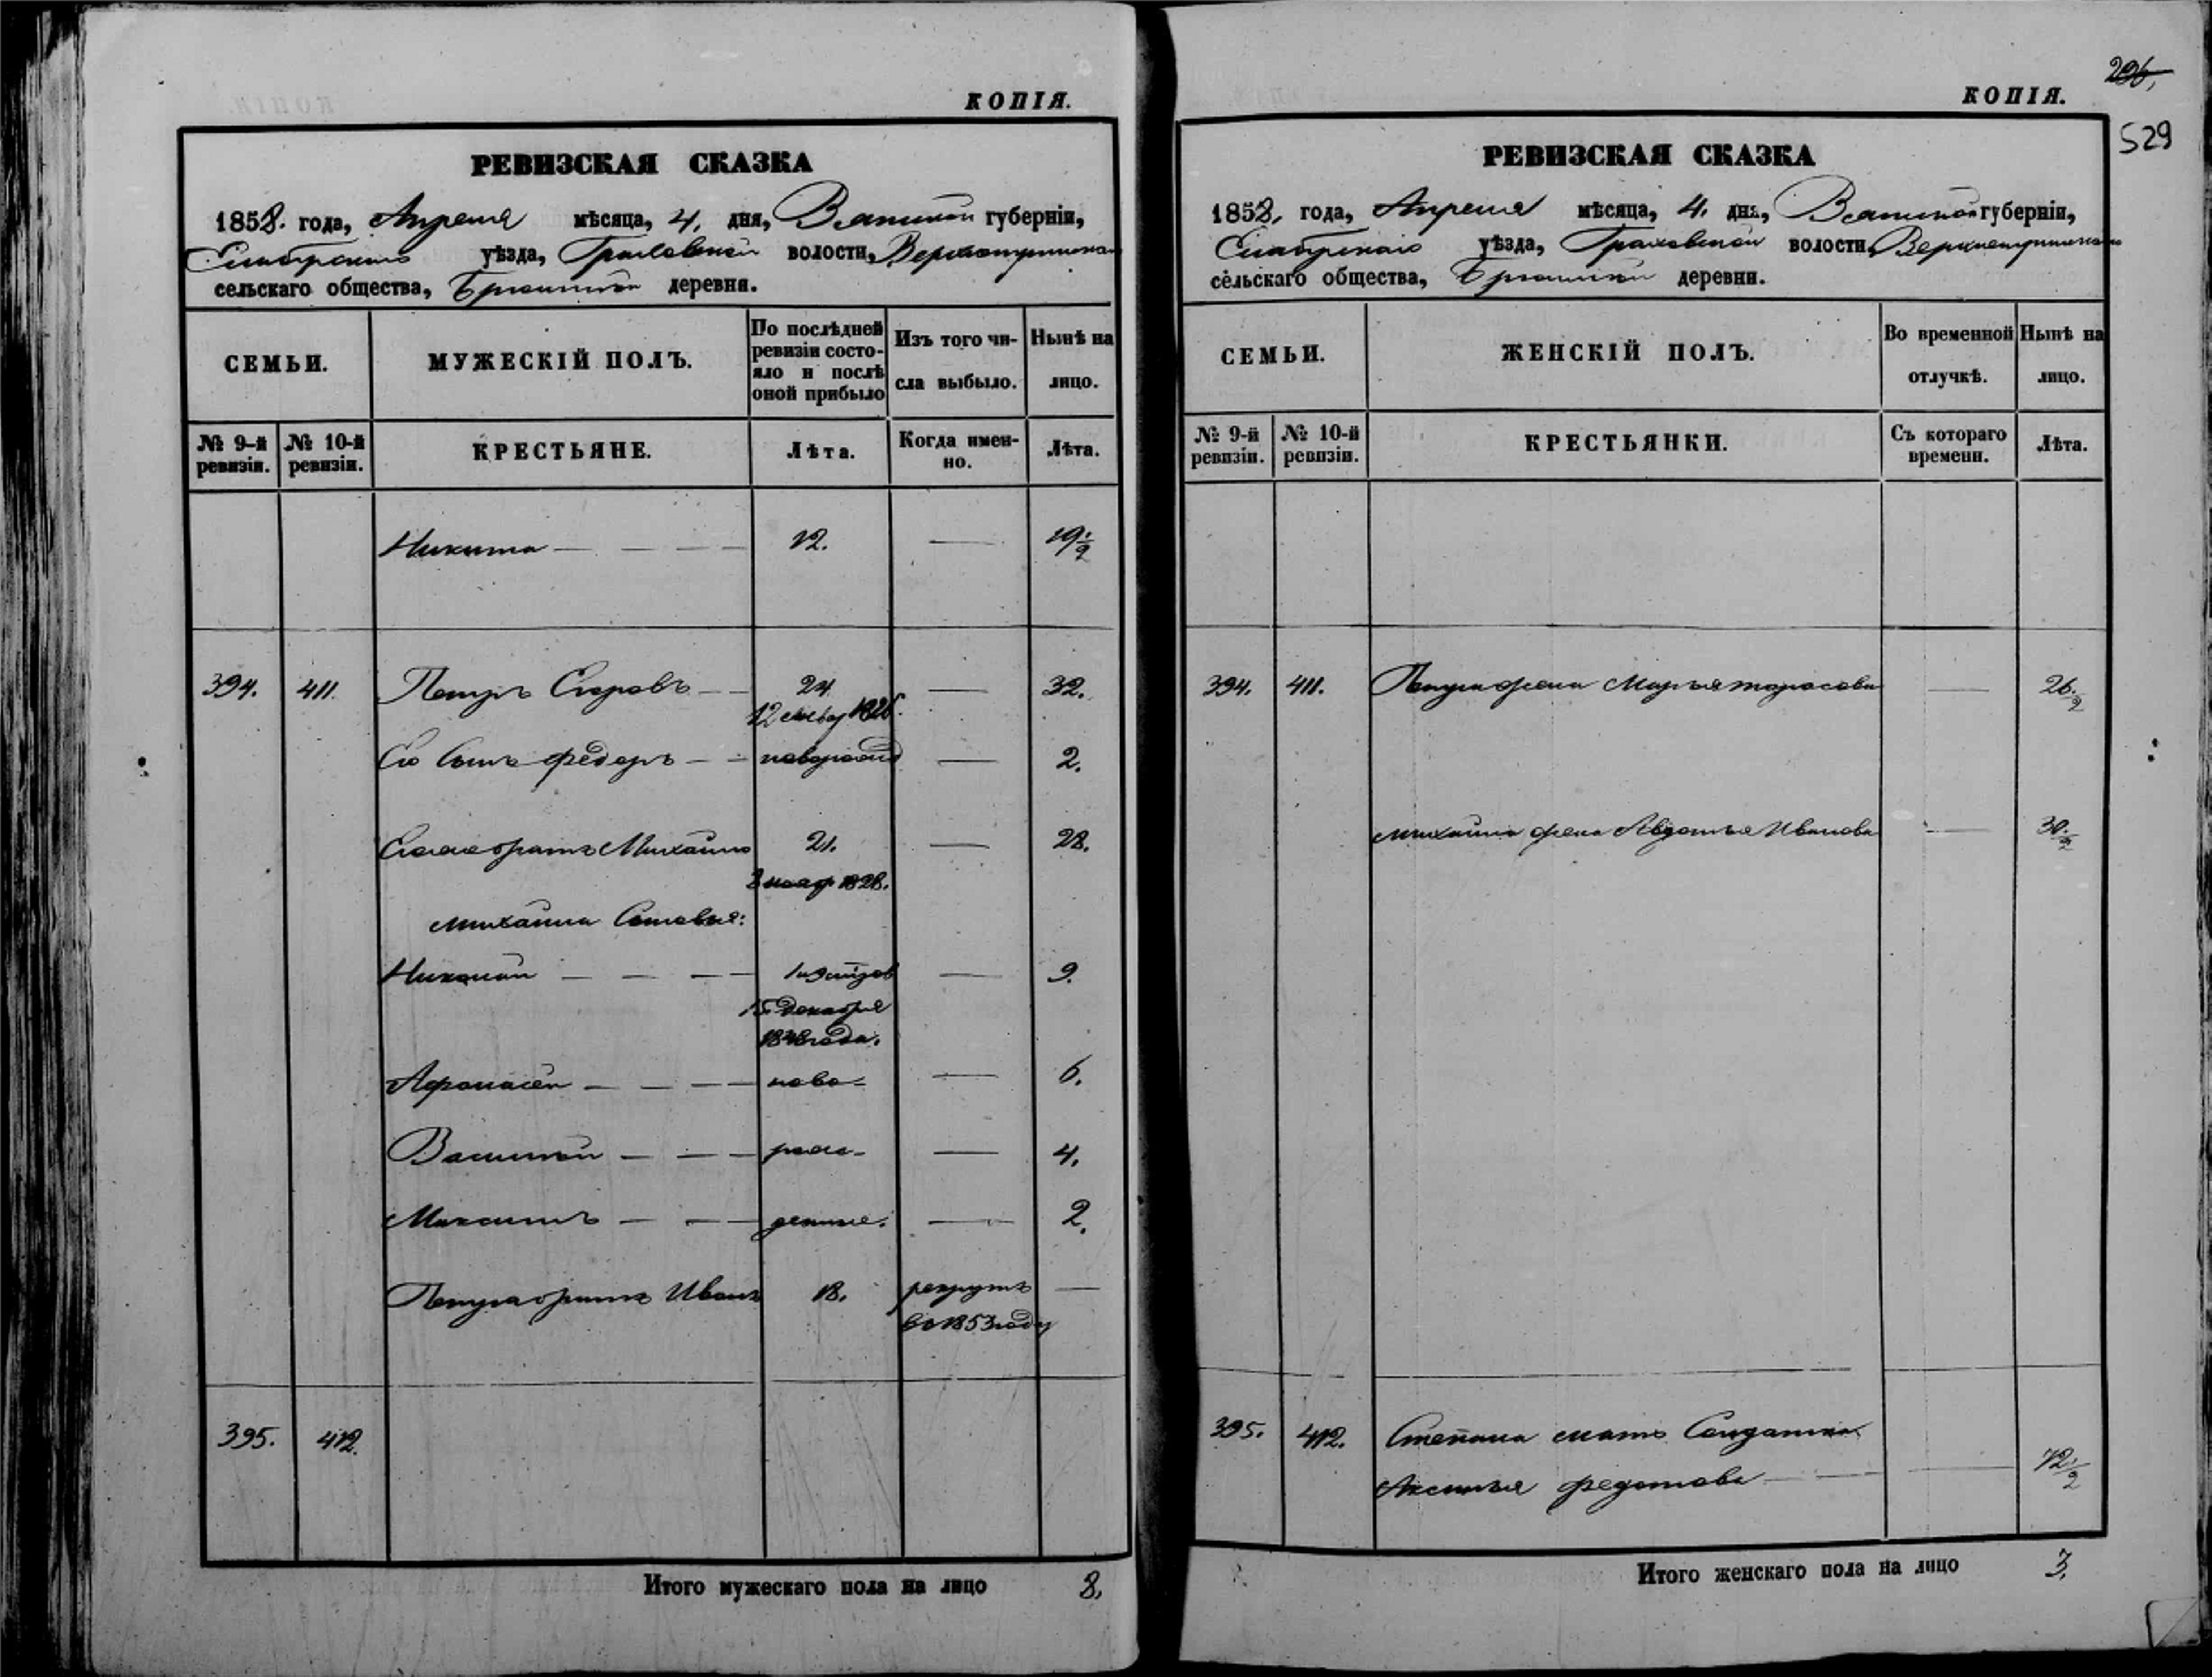 КОПІЯ.
РЕВИЗСКАЯ СКАЗКА
1858. года, Апреля мѣсяца, 4. дня, Вятской губерніи,
Елабужскаго уѣзда, Граховской волости,
сельскаго общества, деревни.
СЕМЬИ. МУЖЕСКІЙ ПОЛЪ. По послѣдней ревизіи состояло и послѣ оной прибыло Изъ того числа выбыло. Нынѣ на лицо.
№ 9-й ревизіи. № 10-й ревизіи. КРЕСТЬЯНЕ. Лѣта. Когда именно. Лѣта.
Никита — — — — 12. — 19 1/2
394. 411. Петръ Егоровъ — — 24 — 32.
Его сынъ Федоръ — — новорожд — 2.
братъ Михайло 21. — 28.
3 нояб 1828.
Михаила Сыновья:
Николай — — — — — 9.
15 Декабря
1848 года.
Афонасей — — — — ново- — 6.
Василей — — — рож- — 4.
Максимъ — — — денные. — 2.
Петра братъ Иванъ 18. рекрутъ —
въ 1853 году
395. 412.
Итого мужескаго пола на лицо 8.
296,
529
КОПІЯ.
РЕВИЗСКАЯ СКАЗКА
1858, года, Апреля мѣсяца, 4. дня, Вятской губерніи,
Елабужскаго уѣзда, Граховской волости,
сельскаго общества, деревни.
СЕМЬИ. ЖЕНСКІЙ ПОЛЪ. Во временной отлучкѣ. Нынѣ на лицо.
№ 9-й ревизіи. № 10-й ревизіи. КРЕСТЬЯНКИ. Съ котораго времени. Лѣта.
394. 411. Петра жена Марья Тарасова — 26 1/2
Михаила жена Авдотья Иванова — 30 1/2
395. 412. Степана мать Солдатка
Аксинья Федотова — — — 72 1/2
Итого женскаго пола на лицо 3.